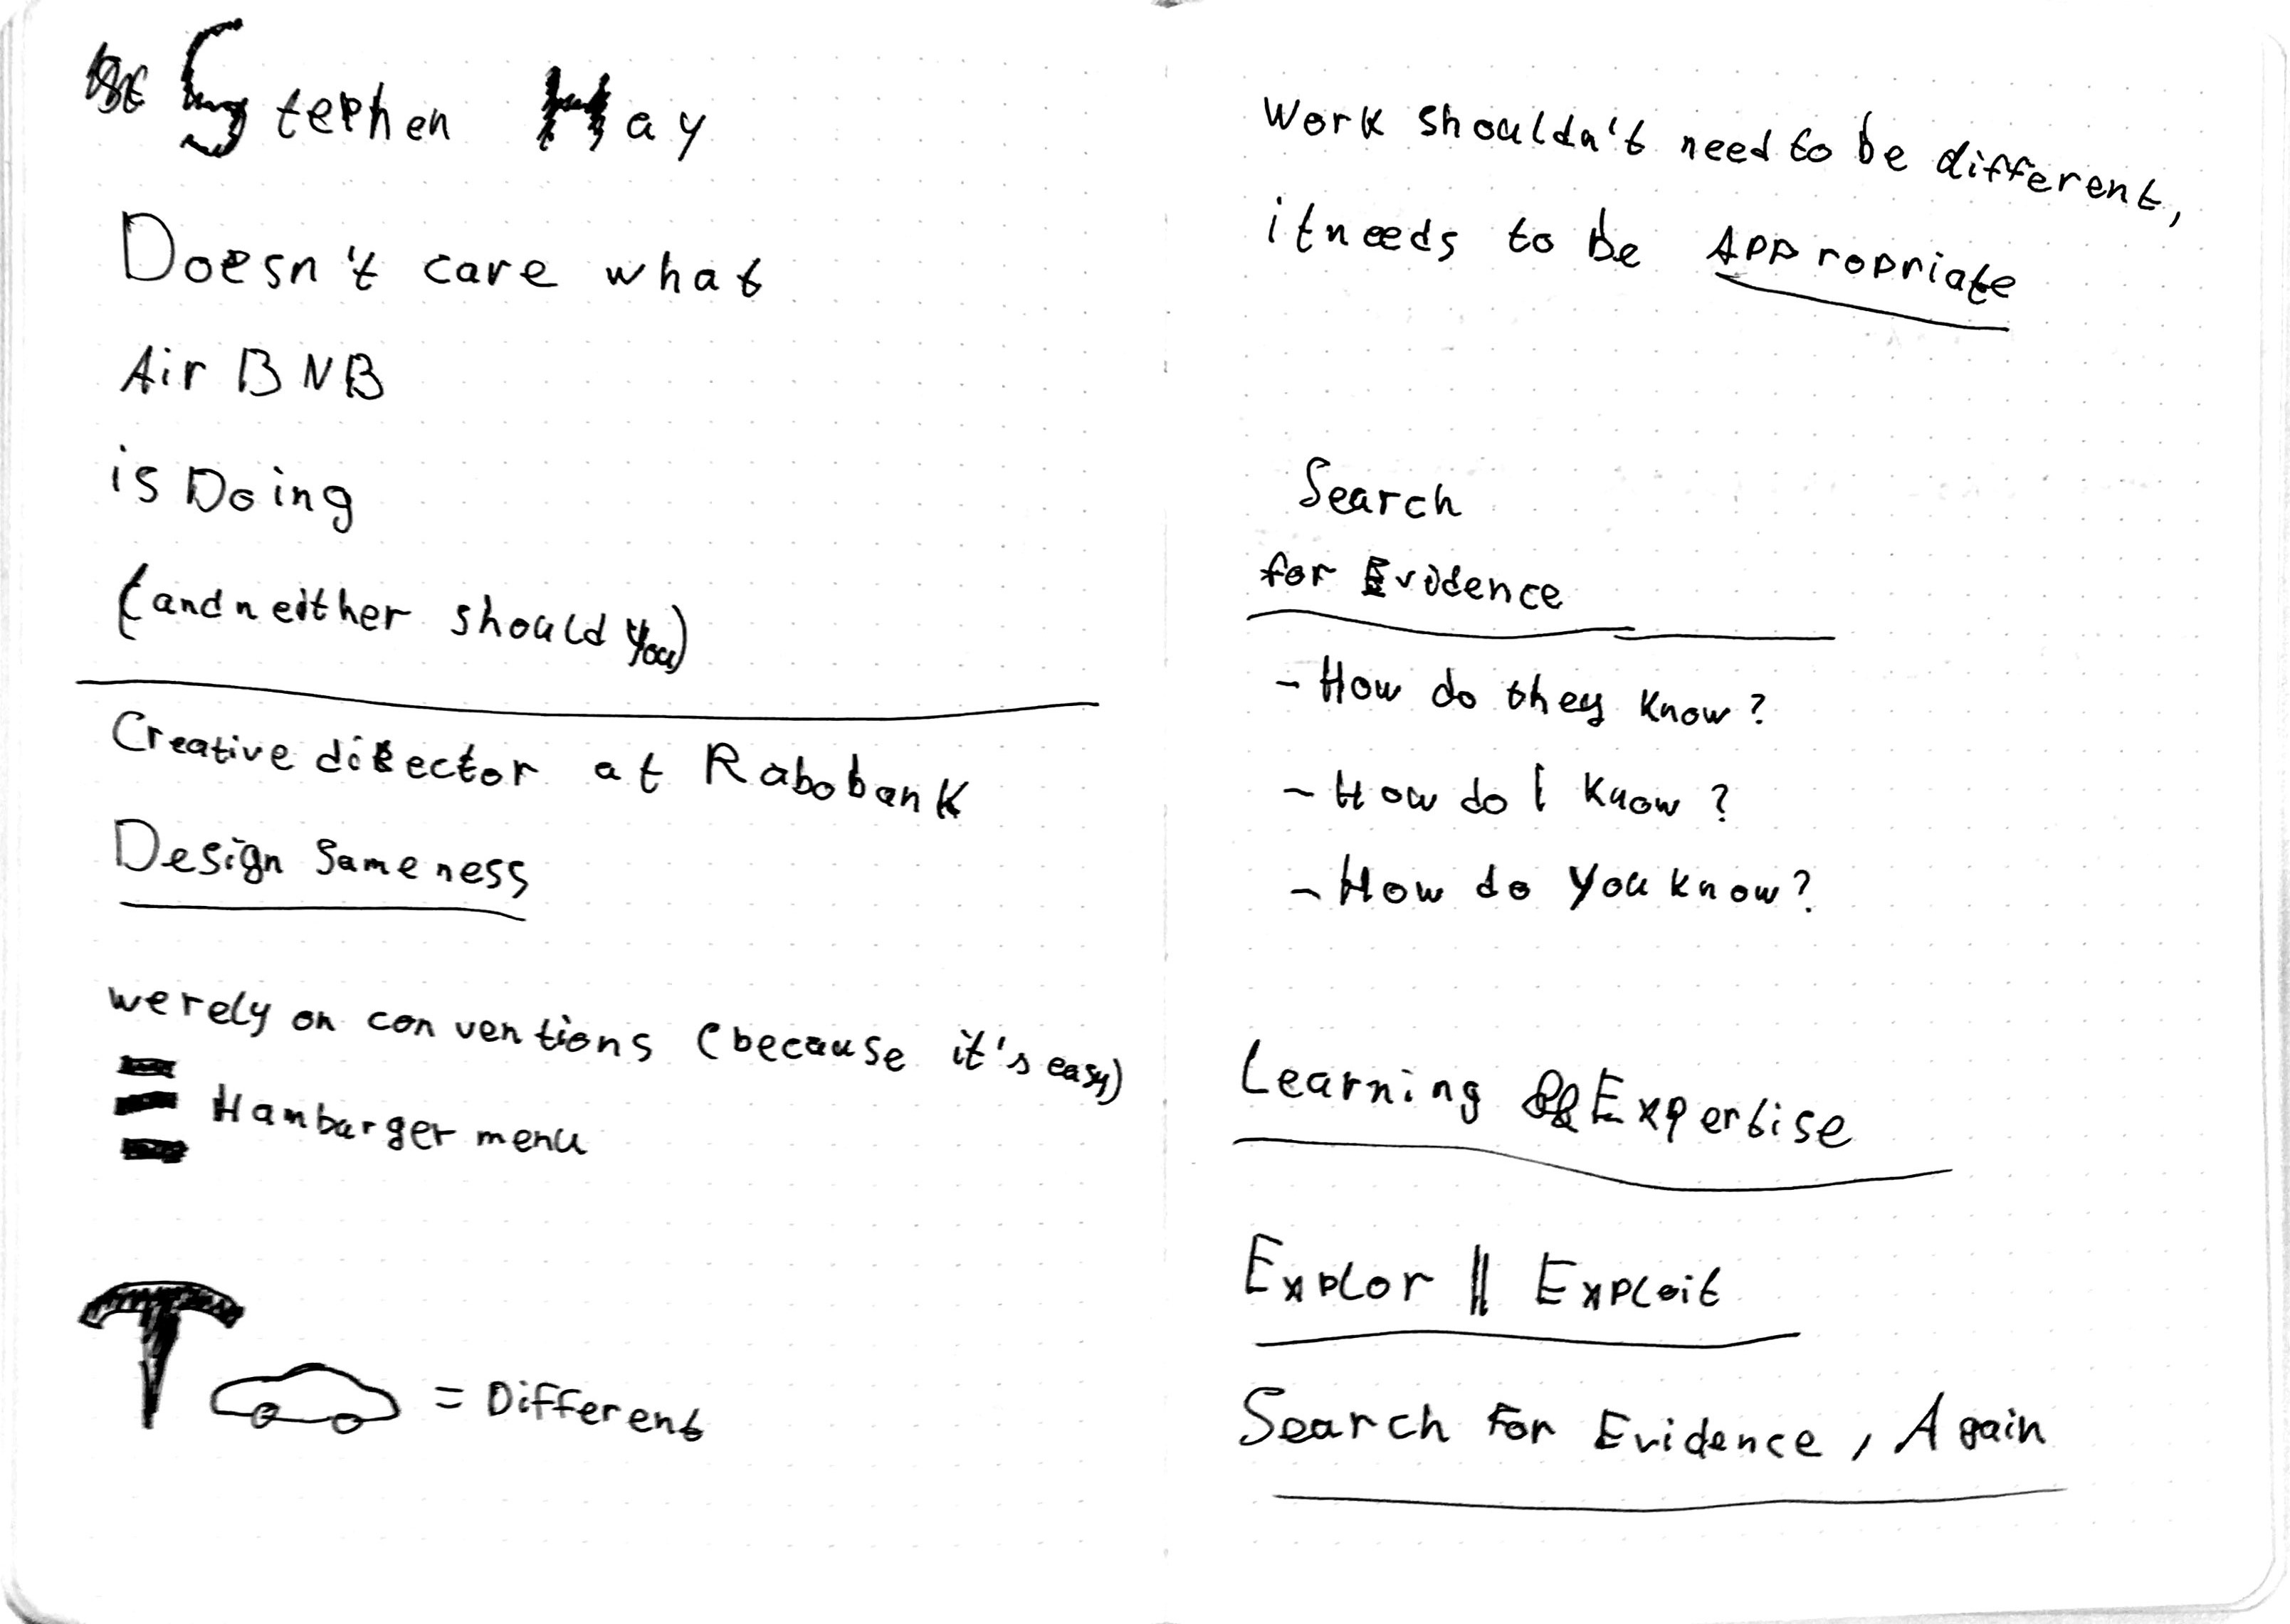 Stephen Hay
Doesn't care what
Air BNB
is Doing
(and neither should you)
Creative director at Rabobank
Design Sameness
we rely on conventions (because it's easy)
Hamburger menu
= Different
Work shouldn't need to be different,
it needs to be Appropriate
Search
for Evidence
- How do they know?
- How do I know?
- How do you know?
Learning && Expertise
Explor || Exploit
Search For Evidence, Again